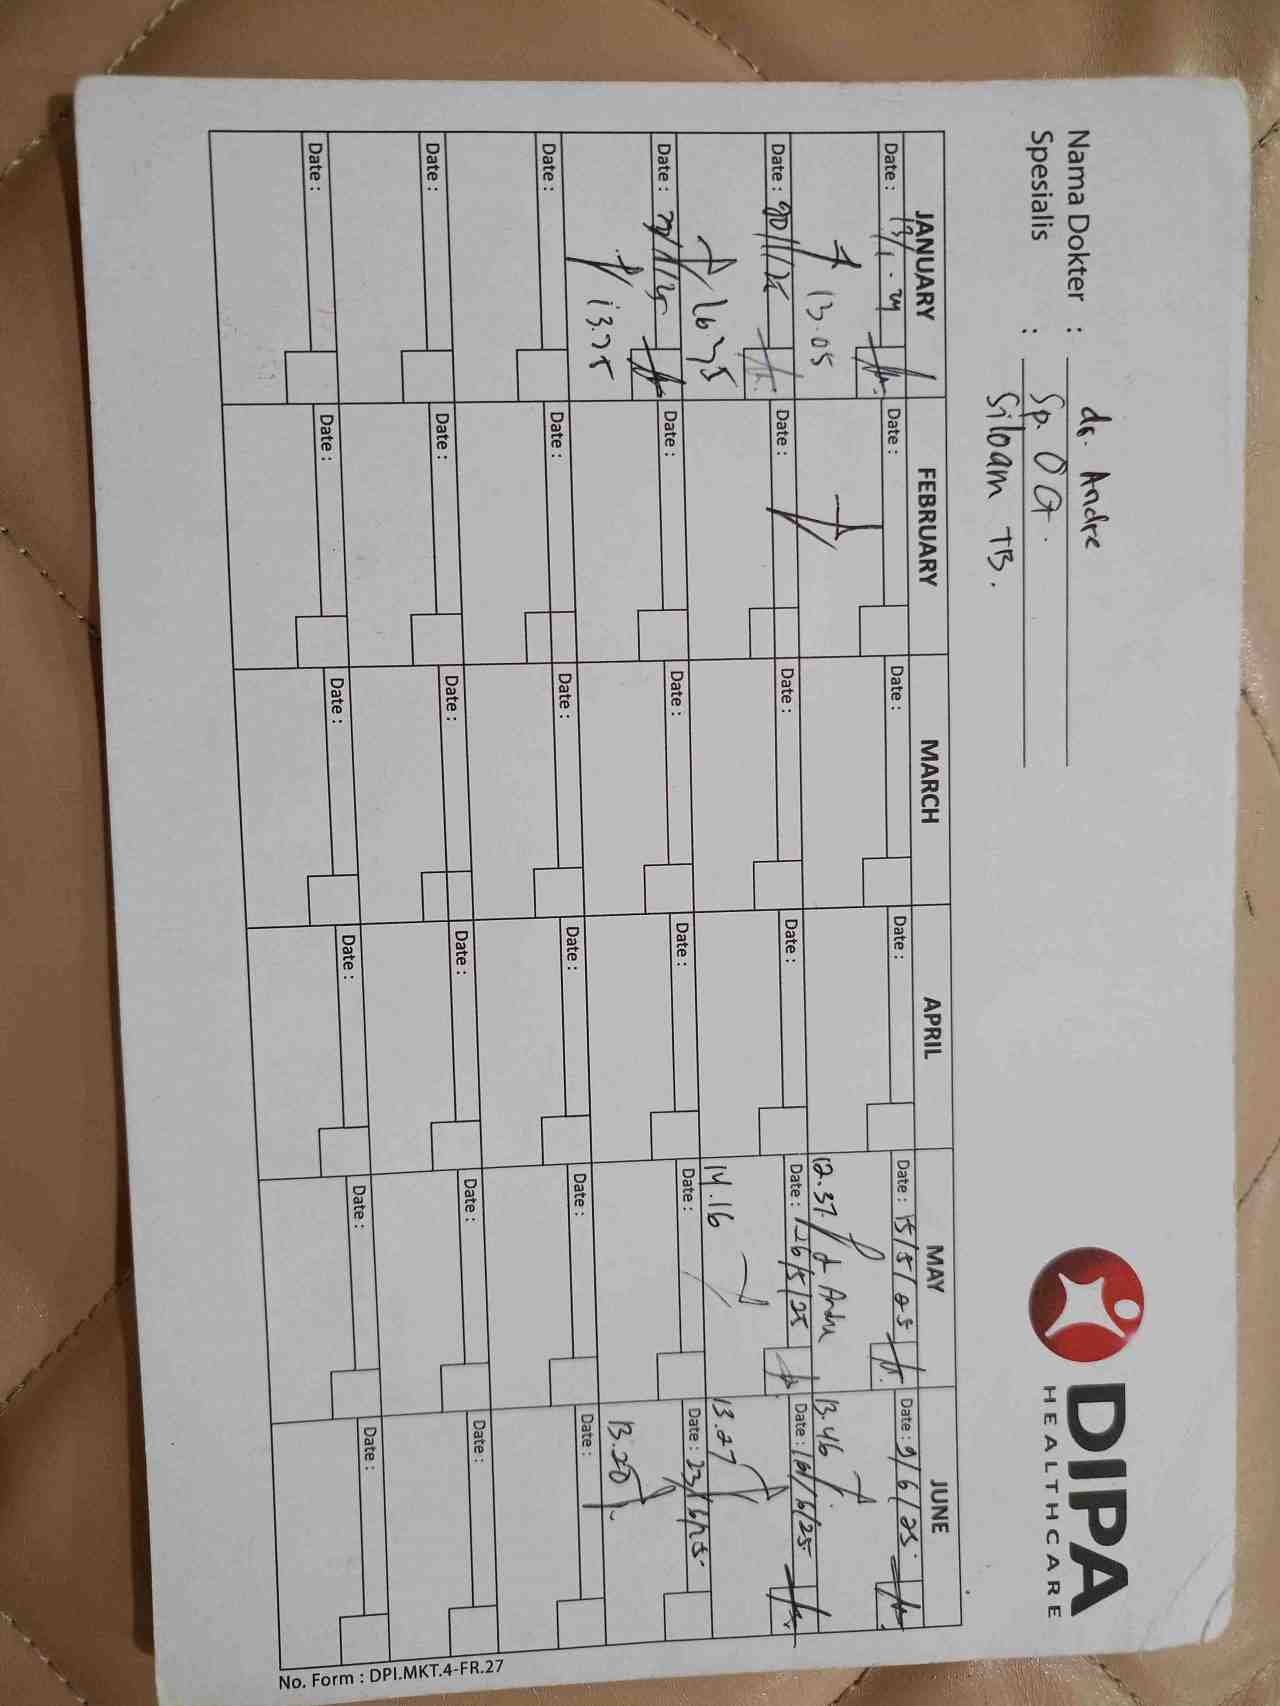 Nama Dokter : dr. Andre
Spesialis : Sp. OG.
Siloam TB.
DIPA
HEALTHCARE
JANUARY FEBRUARY MARCH APRIL MAY JUNE
Date : 13/1. Date : Date : Date : Date : 15/5/25 Date : 9/6/25
13.05 12.37 dr Andre 13.46
Date : 20/1/25 Date : Date : Date : Date : 26/5/25 Date : /6/25
14.16 13.27
Date : /1/25 Date : Date : Date : Date : Date : 23/6/25
13.20
Date : Date : Date : Date : Date : Date :
Date : Date : Date : Date : Date : Date :
Date : Date : Date : Date : Date : Date :
No. Form : DPI.MKT.4-FR.27